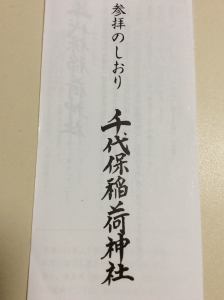 参拝のしおり
千代保稲荷神社